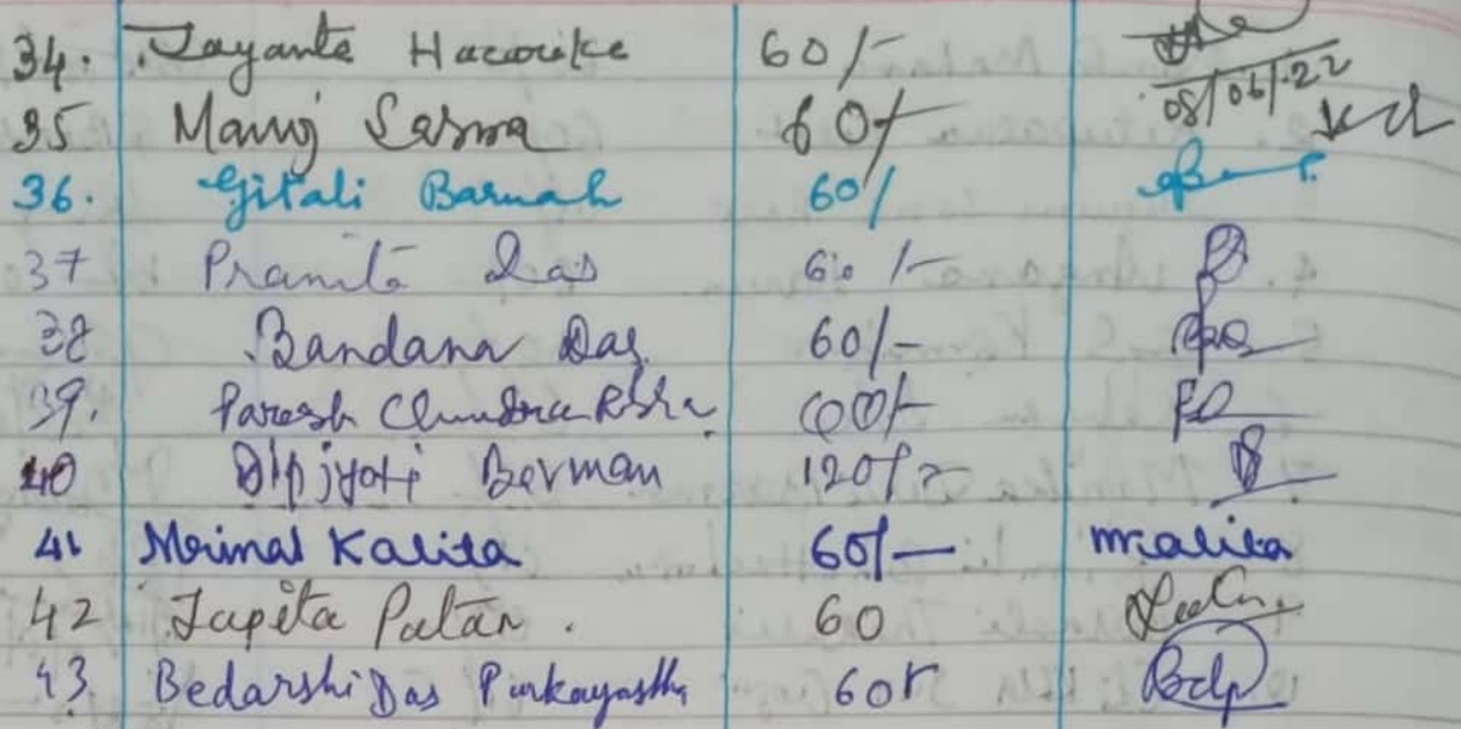 34. Jayanta Hazorike 60/- 08/06/22
35 Manoj Sarma 60/-
36. Gitali Baruah 60/
37 Pranita Das 60/-
38 Bandana Das. 60/-
39. Paresh Chandra 60/-
40 Dipjyoti Barman 120/=
41 Mrinal Kalita 60/- mkalita
42 60
43. Bedarshi Das Purkayastha 60 Bdp